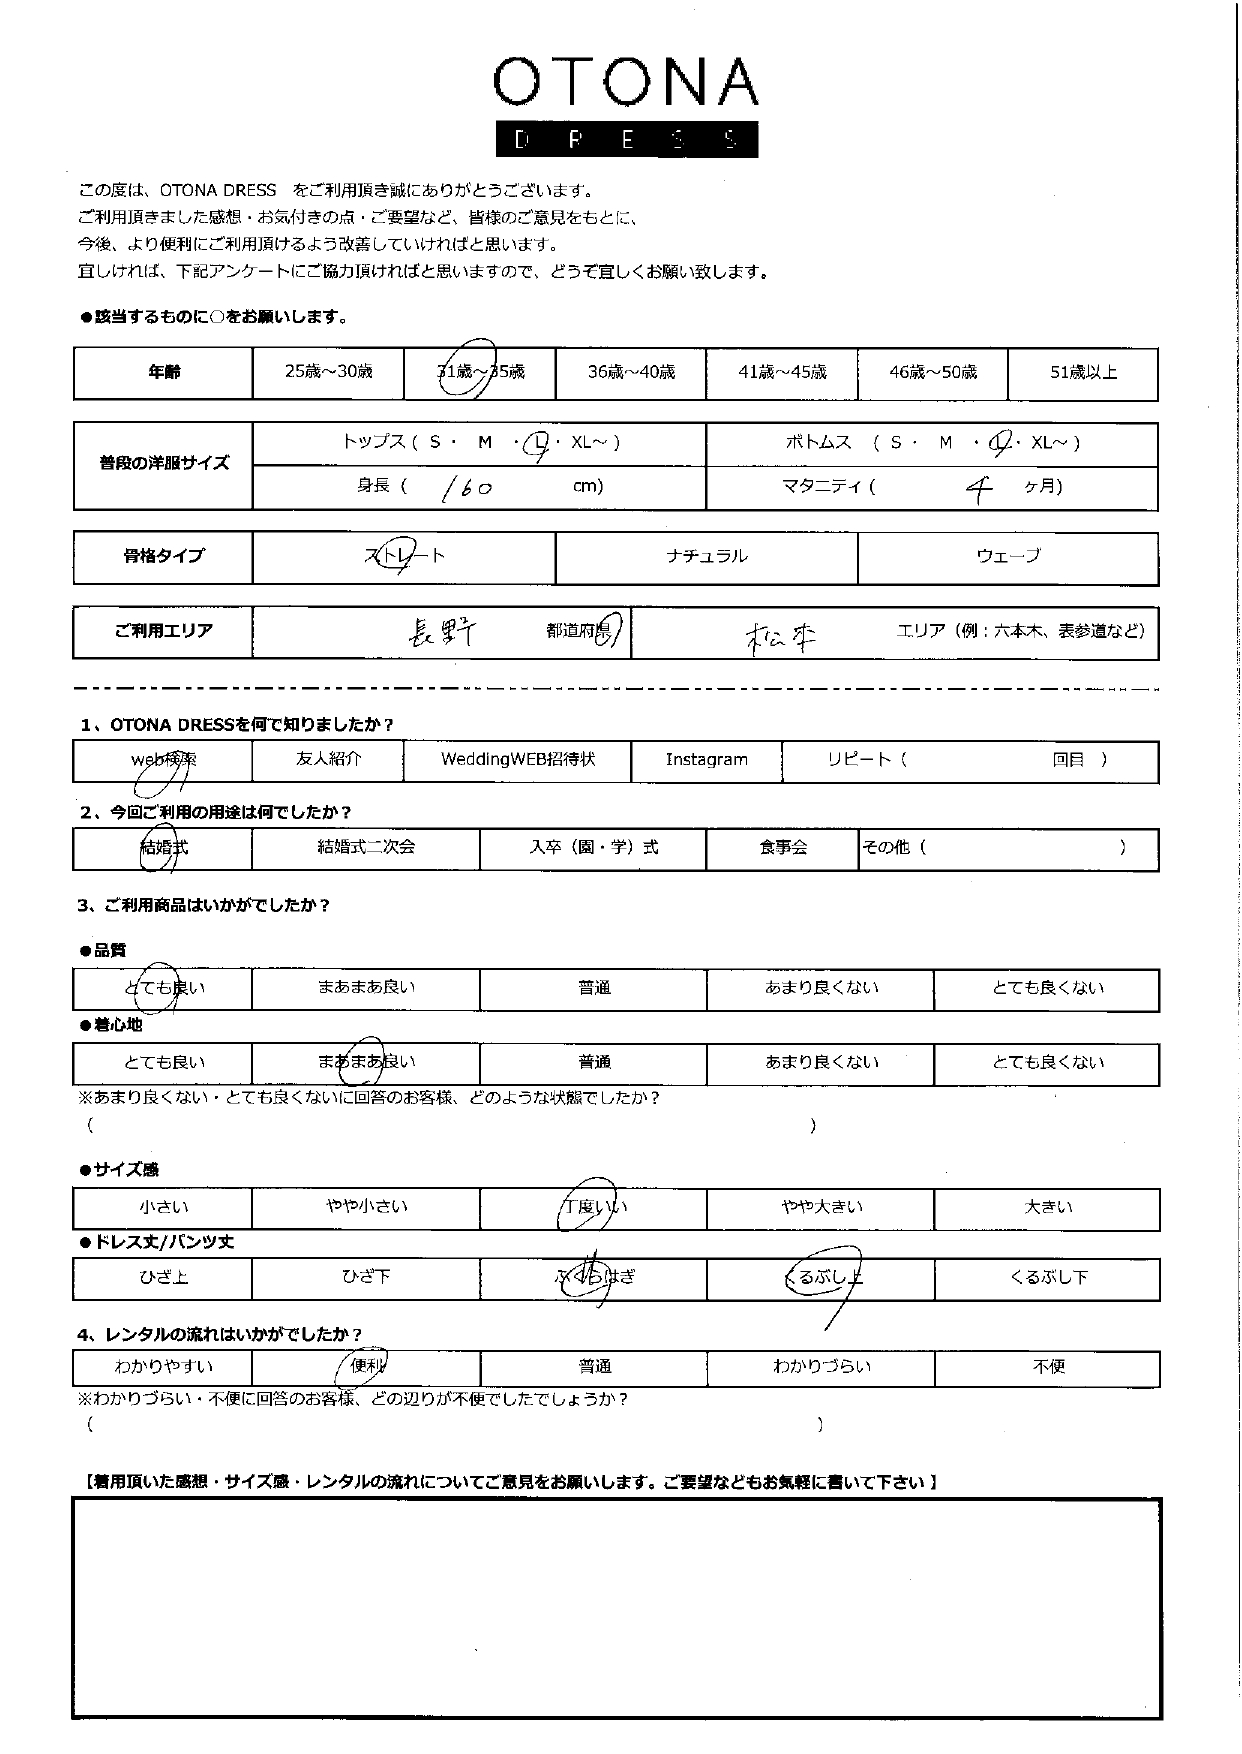 OTONA
DRESS
この度は、OTONA DRESS をご利用頂き誠にありがとうございます。
ご利用頂きました感想・お気付きの点・ご要望など、皆様のご意見をもとに、
今後、より便利にご利用頂けるよう改善していければと思います。
宜しければ、下記アンケートにご協力頂ければと思いますので、どうぞ宜しくお願い致します。
●該当するものに○をお願いします。
年齢 25歳～30歳 31歳～35歳 36歳～40歳 41歳～45歳 46歳～50歳 51歳以上
普段の洋服サイズ トップス ( S ・ M ・ L ・ XL～ ) ボトムス ( S ・ M ・ L ・ XL～ )
身長 ( 160 cm) マタニティ ( 4 ヶ月)
骨格タイプ ストレート ナチュラル ウェーブ
ご利用エリア 長野 都道府県 松本 エリア（例：六本木、表参道など）
1、OTONA DRESSを何で知りましたか？
web検索 友人紹介 WeddingWEB招待状 Instagram リピート ( 回目 )
2、今回ご利用の用途は何でしたか？
結婚式 結婚式二次会 入卒（園・学）式 食事会 その他 ( )
3、ご利用商品はいかがでしたか？
●品質
とても良い まあまあ良い 普通 あまり良くない とても良くない
●着心地
とても良い まあまあ良い 普通 あまり良くない とても良くない
※あまり良くない・とても良くないに回答のお客様、どのような状態でしたか？
( )
●サイズ感
小さい やや小さい 丁度いい やや大きい 大きい
●ドレス丈/パンツ丈
ひざ上 ひざ下 ふくらはぎ くるぶし上 くるぶし下
4、レンタルの流れはいかがでしたか？
わかりやすい 便利 普通 わかりづらい 不便
※わかりづらい・不便に回答のお客様、どの辺りが不便でしたでしょうか？
( )
【着用頂いた感想・サイズ感・レンタルの流れについてご意見をお願いします。ご要望などもお気軽に書いて下さい】